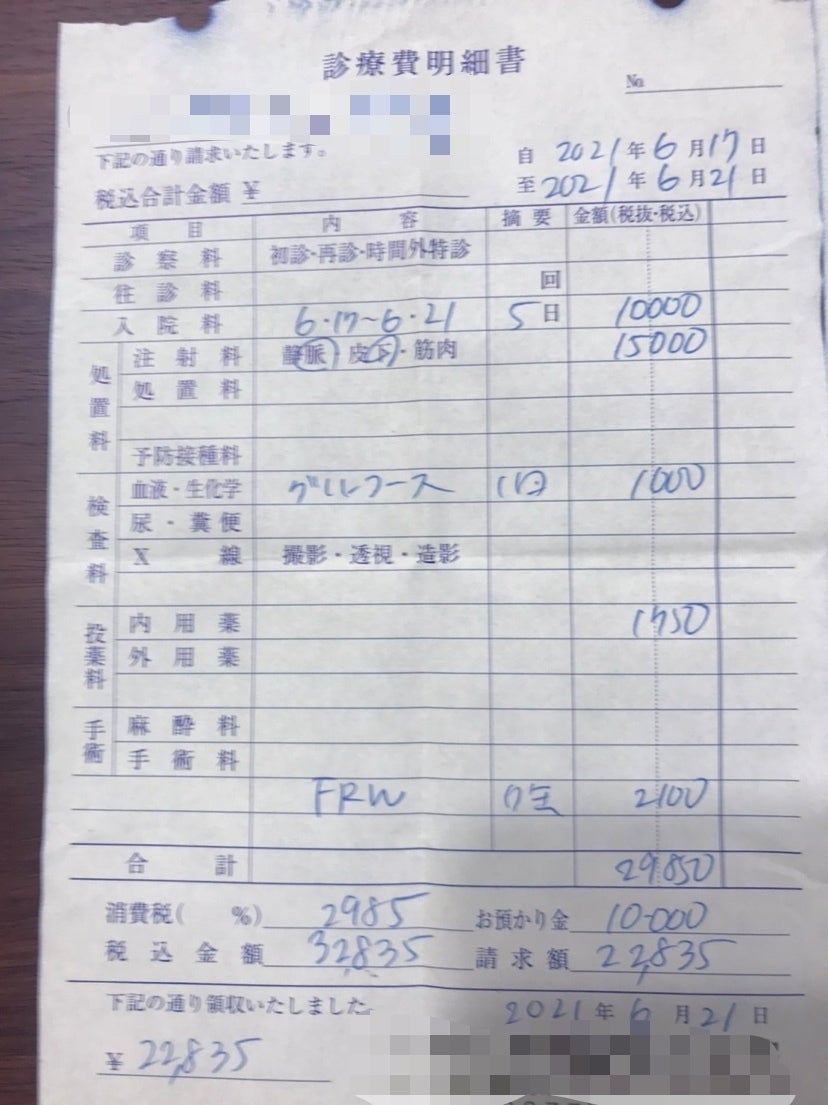 診療費明細書
No.
下記の通り請求いたします。
自 2021年6月17日
税込合計金額 ¥
至 2021年6月21日
項目 内容 摘要 金額(税抜・税込)
診察料 初診・再診・時間外特診
往診料 回
入院料 6.17〜6.21 5日 10000
処置料
注射料 静脈 皮下・筋肉 15000
処置料
予防接種料
検査料
血液・生化学 グルコース 1回 1000
尿・糞便
X線 撮影・透視・造影
投薬料
内用薬 1750
外用薬
手術
麻酔料
手術料
FRW 2100
合計 29,850
消費税( %) 2985 お預かり金 10-000
税込金額 32,835 請求額 22,835
下記の通り領収いたしました。
2021年6月21日
¥ 22,835